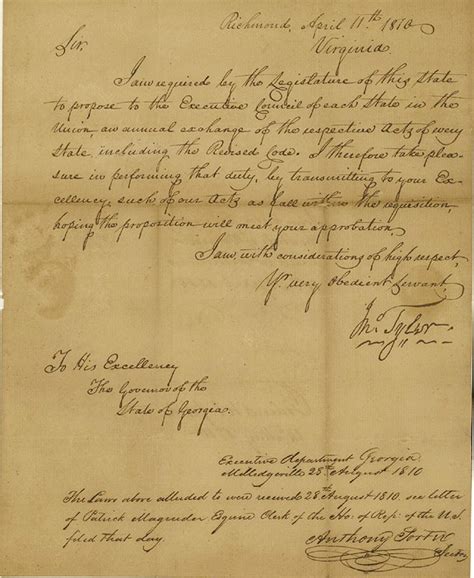 Richmond, April 11th 1810
Virginia
Sir.
I am required by the Legislature of this State
to propose to the Executive Council of each State in the
Union, an annual exchange of the respective Acts of every
State, including the Revised Code. I therefore take plea-
sure in performing that duty, by transmitting to your Ex-
cellency, such of our Acts as fall within the requisition,
hoping the proposition will meet your approbation
I am, with considerations of high respect,
Yr. very Obedient Servant,
Jno Tyler
To His Excellency
The Governor of the
State of Georgia.
Executive department Georgia
Milledgeville 28th August 1810
The Laws above alluded to were received 28th August 1810. see letter
of Patrick Magruder Esquire Clerk of the Ho: of Rep: of the U.S.
filed that day.
Anthony Porter
Secty